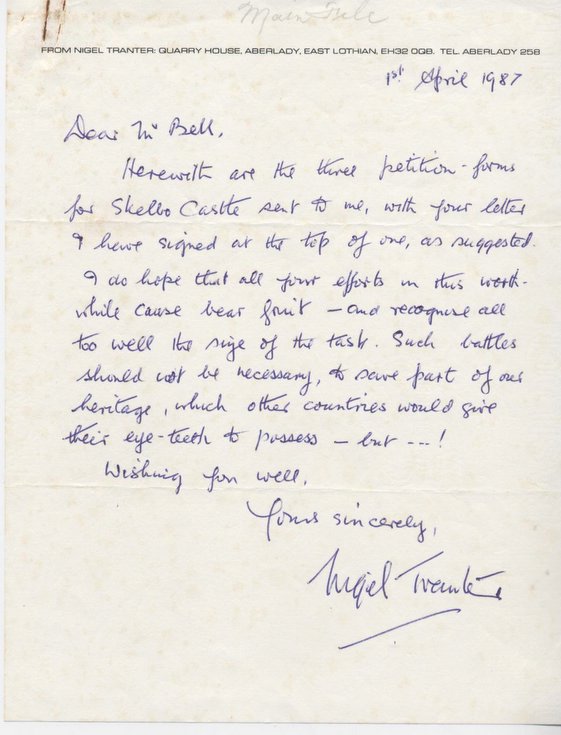 Main File
FROM NIGEL TRANTER: QUARRY HOUSE, ABERLADY, EAST LOTHIAN, EH32 0QB. TEL. ABERLADY 258
1st April 1987
Dear Mr Bell,
Herewith are the three petition-forms
for Skelbo Castle sent to me, with your letter
I have signed at the top of one, as suggested.
I do hope that all your efforts in this worth-
while cause bear fruit – and recognise all
too well the size of the task. Such battles
should not be necessary, to save part of our
heritage, which other countries would give
their eye-teeth to possess – but ---!
Wishing you well,
Yours sincerely,
Nigel Tranter